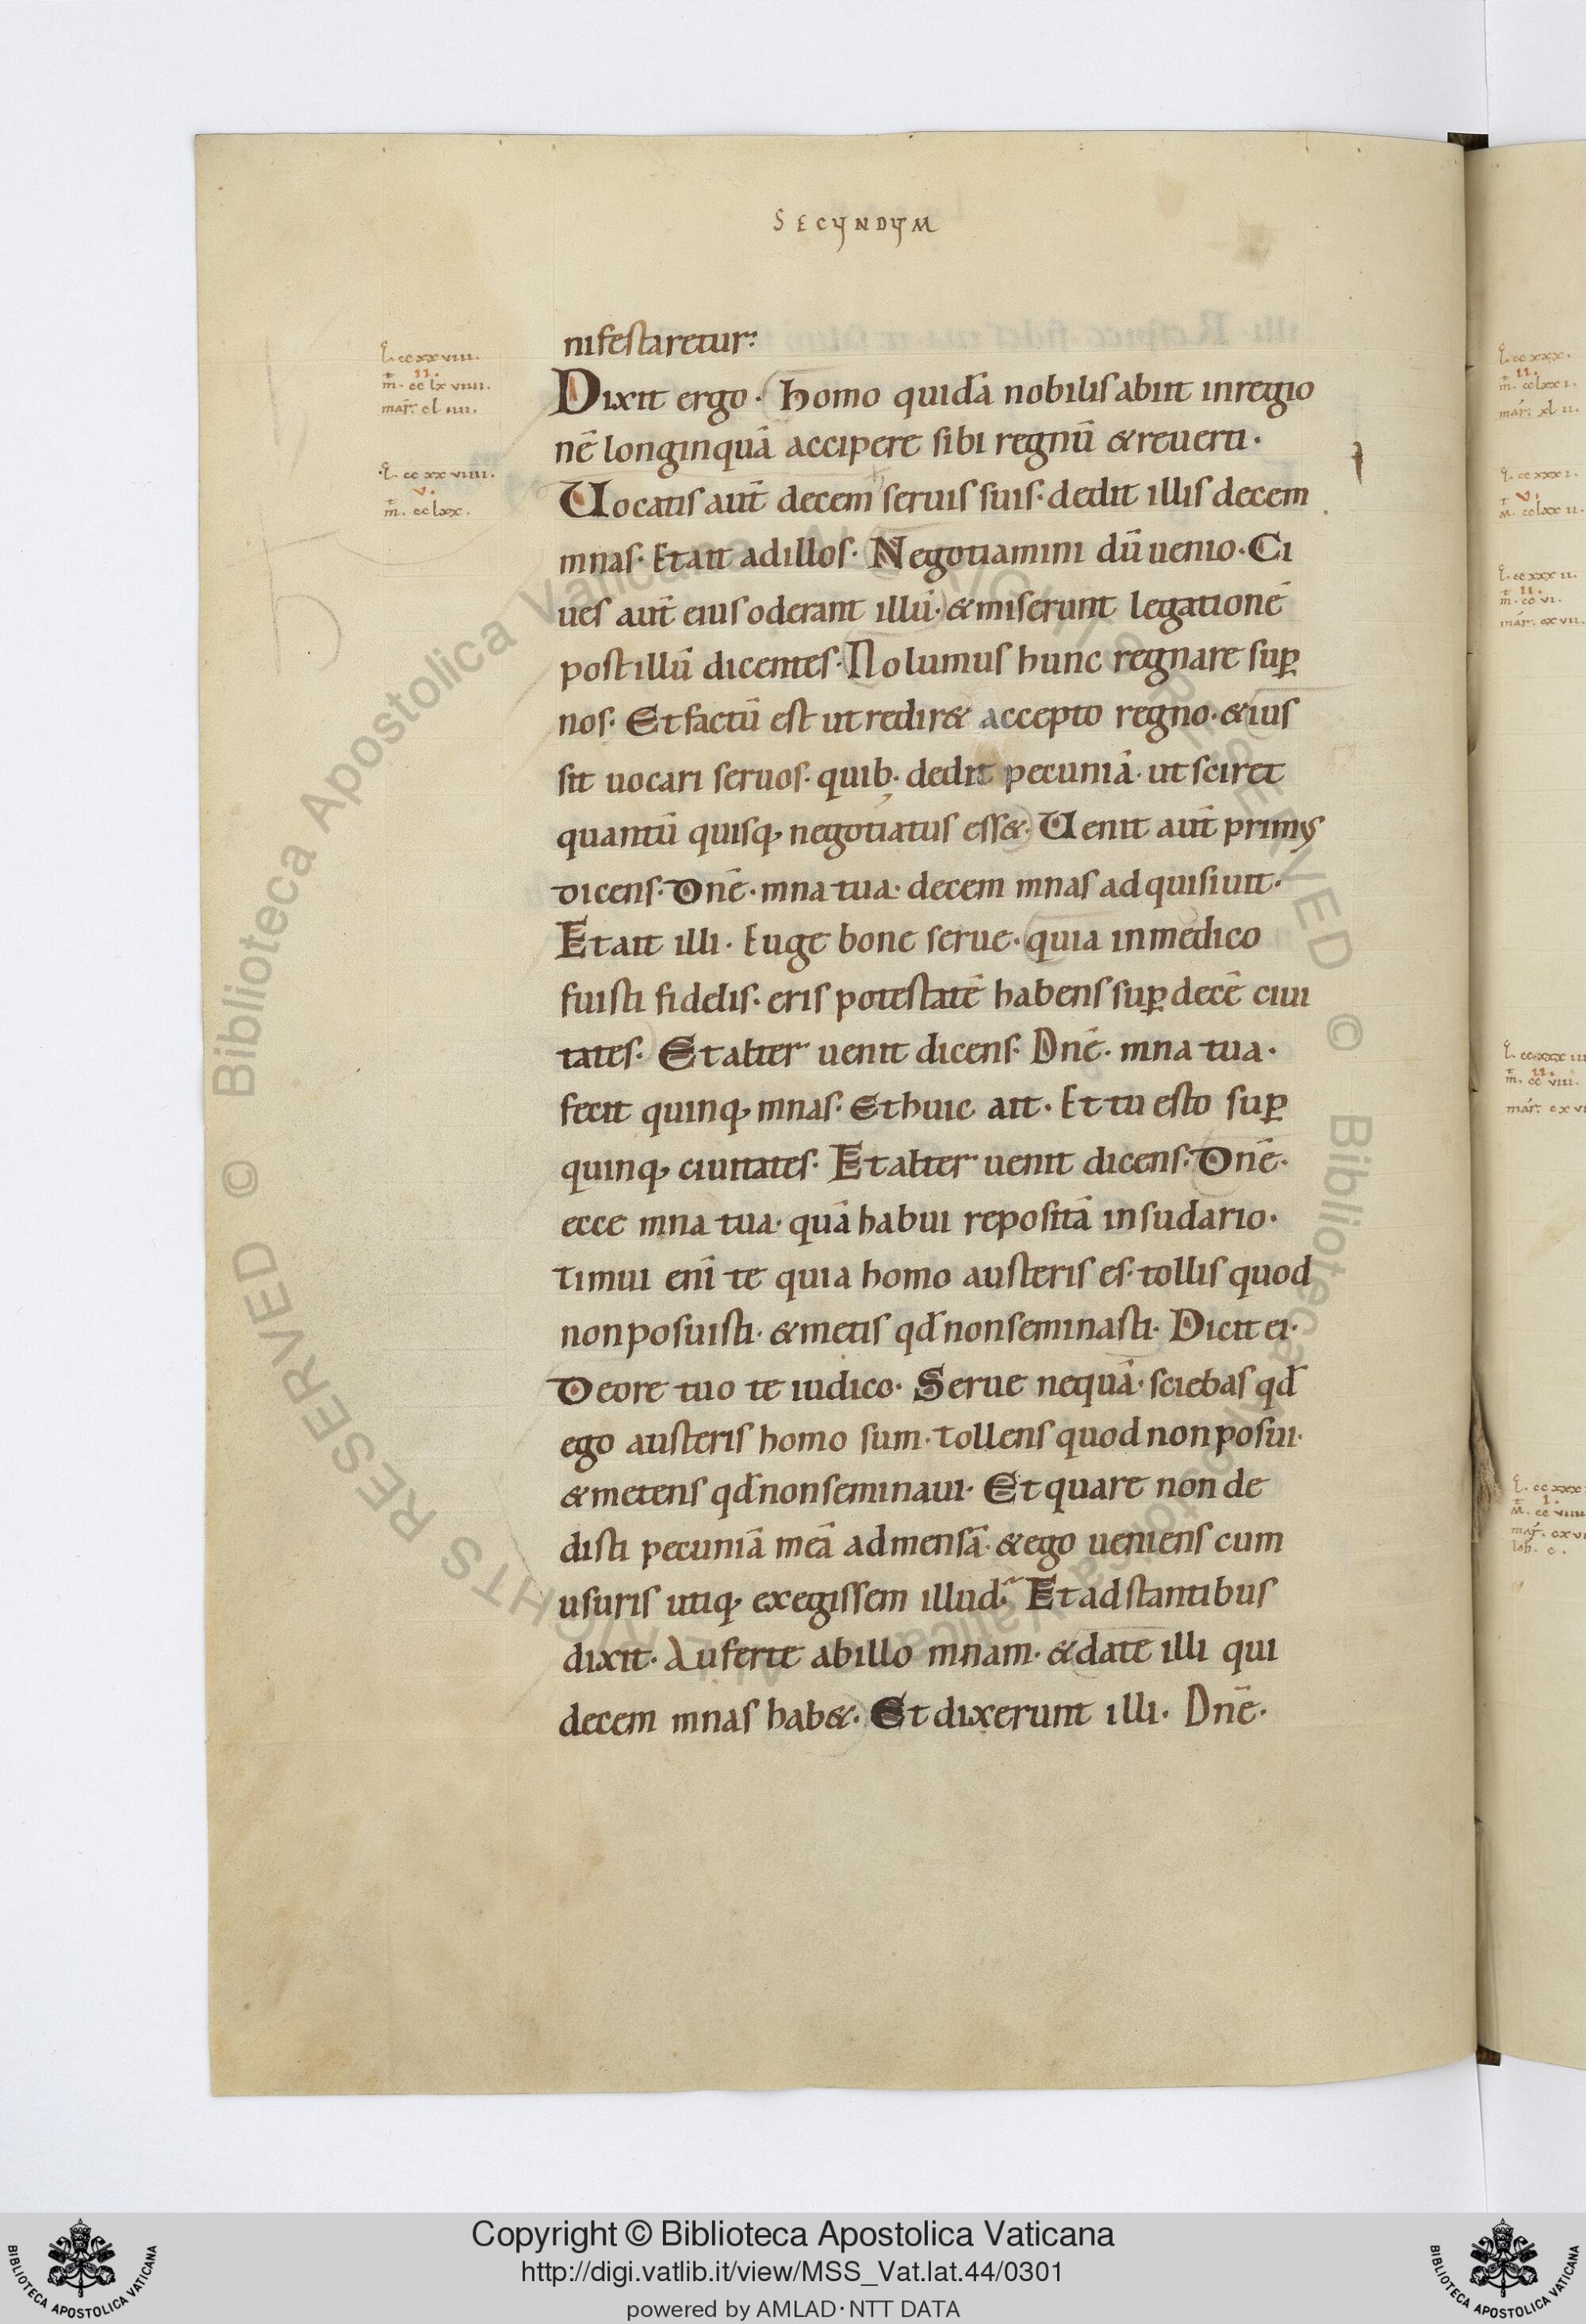 SECUNDUM
nifestaretur·
Dixit ergo· homo quidā nobilis abiit in regio
nē longinquā accipere sibi regnū & reuerti·
Uocatis aut̄ decem seruis suis· dedit illis decem
mnas· Et ait ad illos· Negotiamini dū uenio· Ci
ues aut̄ eius oderant illū· & miserunt legationē
post illū dicentes· Nolumus hunc regnare sup̄
nos· Et factū est ut redir& accepto regno· & ius
sit uocari seruos· quib· dedit pecuniā· ut sciret
quantū quisq, negotiatus ess&· Uenit aut̄ primus
dicens· Dn̄e· mna tua· decem mnas adquisiuit·
Et ait illi· Euge bone serue· quia in medico
fuisti fidelis· eris potestatē habens sup̄ decē ciui
tates· Et alter uenit dicens· Dn̄e· mna tua·
fecit quinq, mnas· Et huic ait· Et tu esto sup̄
quinq, ciuitates· Et alter uenit dicens· Dn̄e·
ecce mna tua· quā habui repositā in sudario·
timui enī te quia homo austeris es· tollis quod
non posuisti· & metis qd̄ non seminasti· Dicit ei·
De ore tuo te iudico· Serue nequā· sciebas qd̄
ego austeris homo sum· tollens quod non posui·
& metens qd̄ non seminaui· Et quare non de
disti pecuniā meā ad mensā· & ego ueniens cum
usuris utiq, exegissem illud· Et adstantibus
dixit· Auferte ab illo mnam· & date illi qui
decem mnas hab&· Et dixerunt illi· Dn̄e·
L. cc xx viii.
ii.
m̄. cc lx viiii.
mar̄. cl iiii.
L. cc xx viiii.
v.
m̄. cc lxx.
Copyright © Biblioteca Apostolica Vaticana
http://digi.vatlib.it/view/MSS_Vat.lat.44/0301
powered by AMLAD·NTT DATA
BIBLIOTECA APOSTOLICA VATICANA
BIBLIOTECA APOSTOLICA VATICANA
© Biblioteca Apostolica Vaticana ALL RIGHTS RESERVED
© Biblioteca Apostolica Vaticana ALL RIGHTS RESERVED